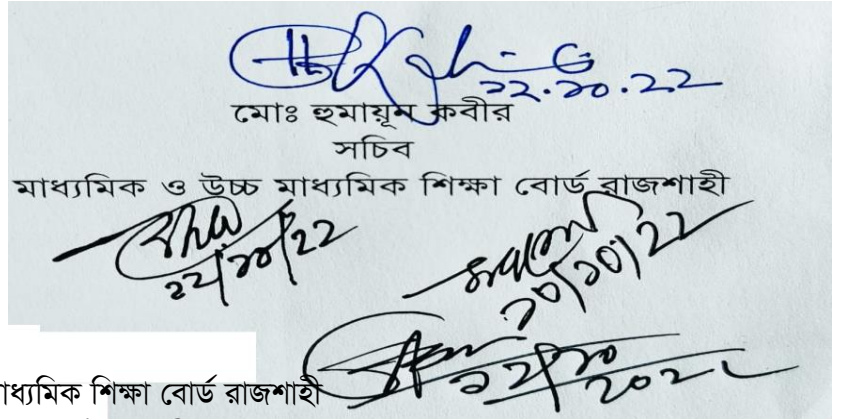 ১২.১০.২২
মোঃ হুমায়ূন কবীর
সচিব
মাধ্যমিক ও উচ্চ মাধ্যমিক শিক্ষা বোর্ড রাজশাহী
১২/১০/২২
১০/১০/২২
১২/১০
২০২২
াধ্যমিক শিক্ষা বোর্ড রাজশাহী